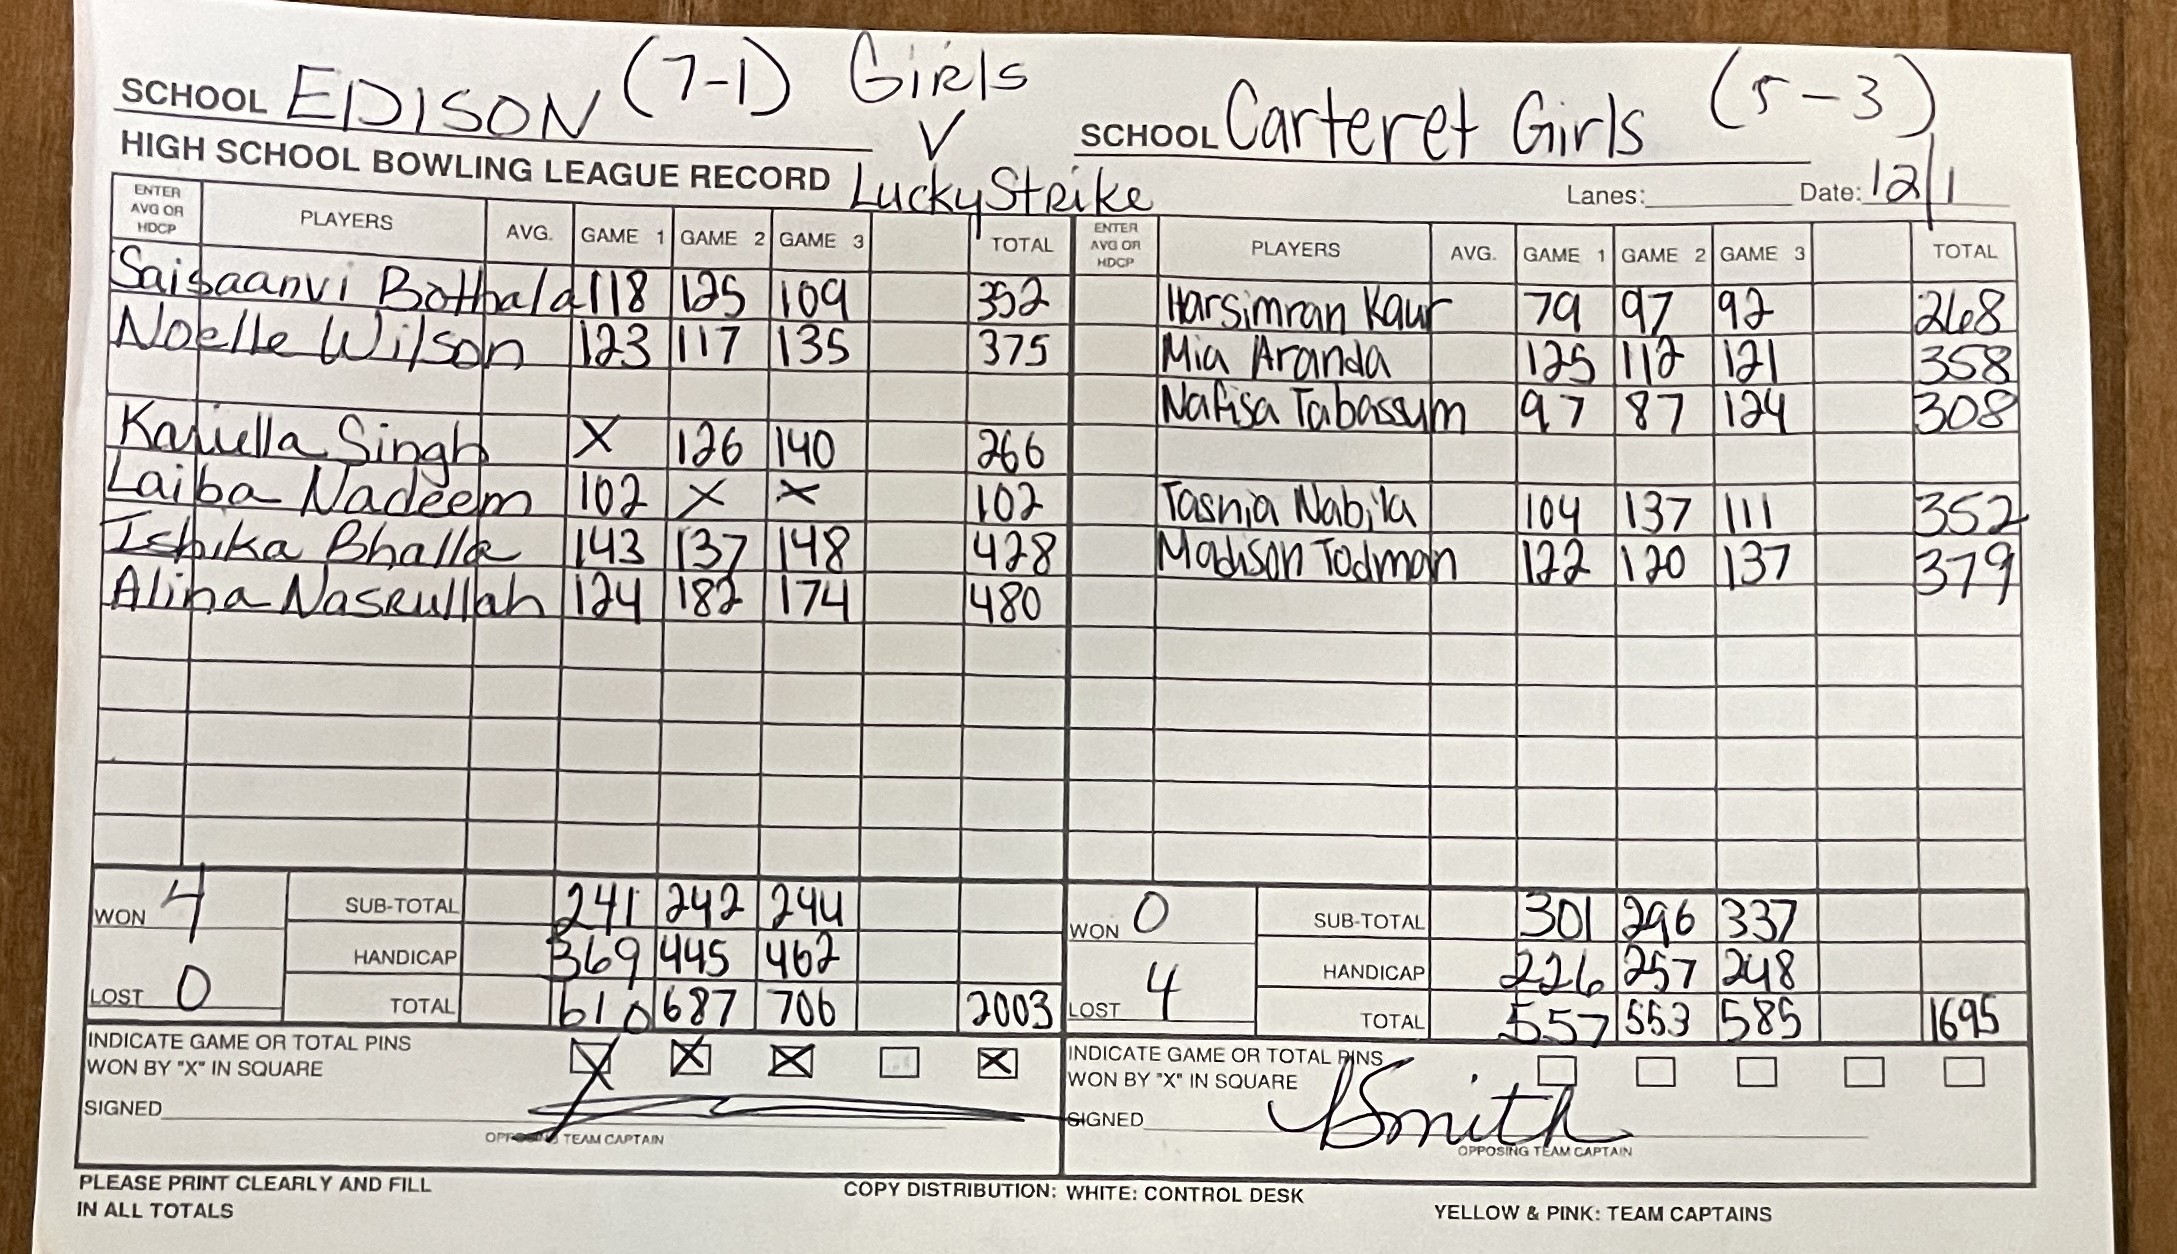 SCHOOL EDISON (7-1) Girls
V
SCHOOL Carteret Girls (5-3)
HIGH SCHOOL BOWLING LEAGUE RECORD Lucky Strike
Lanes: Date: 12/1
ENTER AVG OR HDCP PLAYERS AVG. GAME 1 GAME 2 GAME 3 TOTAL ENTER AVG OR HDCP PLAYERS AVG. GAME 1 GAME 2 GAME 3 TOTAL
Saisaanvi Bothala 118 125 109 352 Harsimran Kaur 79 97 92 268
Noelle Wilson 123 117 135 375 Mia Aranda 125 112 121 358
Nafisa Tabassum 97 87 124 308
Singh X 126 140 266
Laiba Nadeem 102 X X 102 Tasnia Nabila 104 137 111 352
Ishika Bhalla 143 137 148 428 Madison Todman 122 120 137 379
Alina Nasrullah 124 182 174 480
WON 4 SUB-TOTAL 241 242 244 WON 0 SUB-TOTAL 301 296 337
HANDICAP 369 445 462 HANDICAP 226 257 248
LOST 0 TOTAL 610 687 706 2003 LOST 4 TOTAL 557 553 585 1695
INDICATE GAME OR TOTAL PINS
WON BY "X" IN SQUARE X X X X
INDICATE GAME OR TOTAL PINS
WON BY "X" IN SQUARE
SIGNED
OPPOSING TEAM CAPTAIN
SIGNED Smith
OPPOSING TEAM CAPTAIN
PLEASE PRINT CLEARLY AND FILL
IN ALL TOTALS
COPY DISTRIBUTION: WHITE: CONTROL DESK
YELLOW & PINK: TEAM CAPTAINS